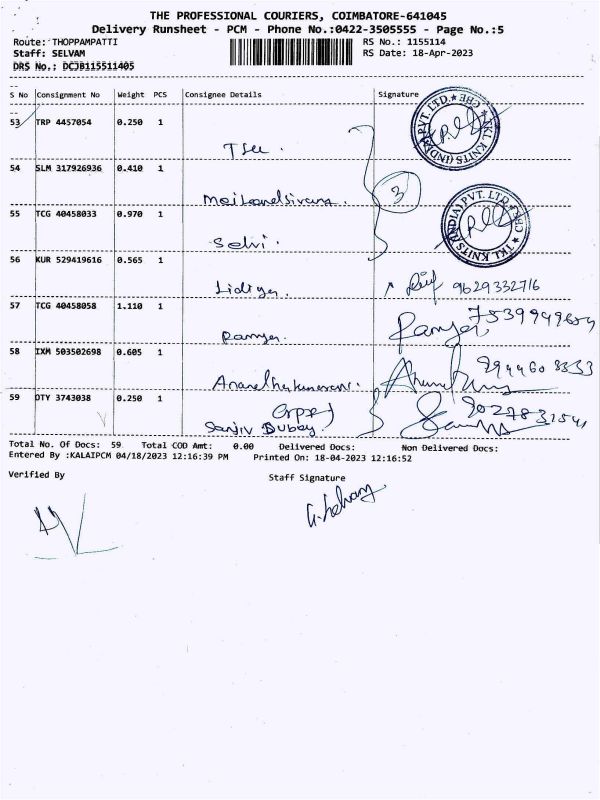 THE PROFESSIONAL COURIERS, COIMBATORE-641045
Delivery Runsheet - PCM - Phone No.:0422-3505555 - Page No.:5
Route: THOPPAMPATTI RS No.: 1155114
Staff: SELVAM RS Date: 18-Apr-2023
DRS No.: DCJB115511405
S No Consignment No Weight PCS Consignee Details Signature
53 TRP 4457054 0.250 1
54 SLM 317926936 0.410 1
3
55 TCG 40458033 0.970 1
Selvi.
56 KUR 529419616 0.565 1
Lidiya. 9629332716
57 TCG 40458058 1.110 1
Ramya. Ramya
58 IXM 503502698 0.605 1
59 DTY 3743038 0.250 1
Sanjiv Dubey
Total No. Of Docs: 59 Total COD Amt: 0.00 Delivered Docs: Non Delivered Docs:
Entered By :KALAIPCM 04/18/2023 12:16:39 PM Printed On: 18-04-2023 12:16:52
Verified By Staff Signature
TKL KNITS (INDIA) PVT. LTD. ★ CHE
TKL KNITS (INDIA) PVT. LTD. ★ CHE